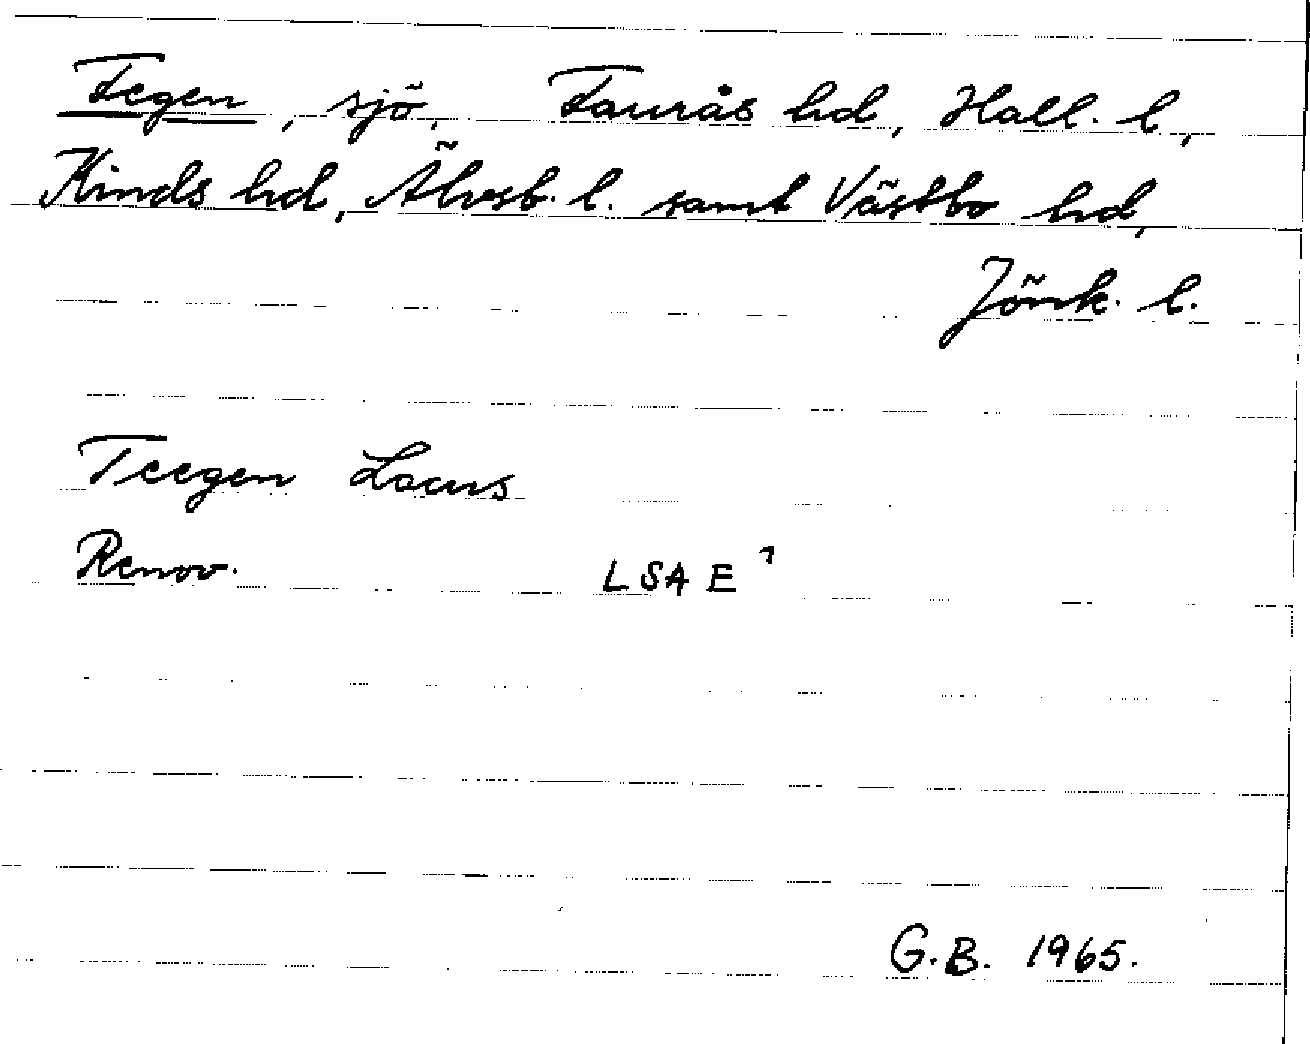 Fegen, sjö, Faurås hd, Hall. l,
Kinds hd, Älvsb. l. samt Västbo hd,
Jönk. l.
Teegen Lacus
Renov. LSA E 1
G.B. 1965.